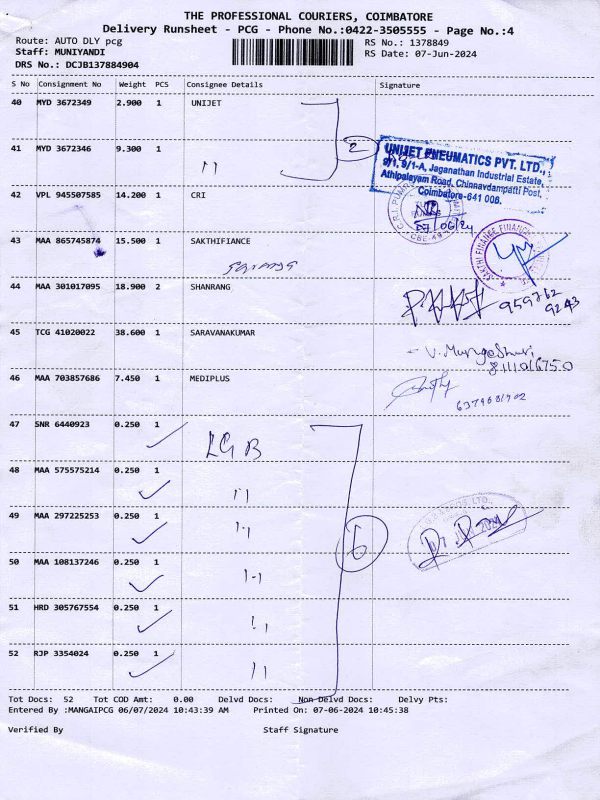 THE PROFESSIONAL COURIERS, COIMBATORE
Delivery Runsheet - PCG - Phone No.:0422-3505555 - Page No.:4
Route: AUTO DLY pcg RS No.: 1378849
Staff: MUNIYANDI RS Date: 07-Jun-2024
DRS No.: DCJB137884904
S No Consignment No Weight PCS Consignee Details Signature
40 MYD 3672349 2.900 1 UNIJET
41 MYD 3672346 9.300 1 2
" UNIJET PNEUMATICS PVT. LTD.,
9/1, 9/1-A, Jaganathan Industrial Estate,
Athipalayam Road, Chinnavdampatti Post,
Coimbatore-641 006.
42 VPL 945507585 14.200 1 CRI
07/06/24
43 MAA 865745874 15.500 1 SAKTHIFIANCE
SAKTHI FINANCE
44 MAA 301017095 18.900 2 SHANRANG
45 TCG 41020022 38.600 1 SARAVANAKUMAR
46 MAA 703857686 7.450 1 MEDIPLUS
47 SNR 6440923 0.250 1 LGB
48 MAA 575575214 0.250 1 "
49 MAA 297225253 0.250 1 "
6
50 MAA 108137246 0.250 1 "
51 HRD 305767554 0.250 1 "
52 RJP 3354024 0.250 1 "
Tot Docs: 52 Tot COD Amt: 0.00 Delvd Docs: Non Delvd Docs: Delvy Pts:
Entered By :MANGAIPCG 06/07/2024 10:43:39 AM Printed On: 07-06-2024 10:45:38
Verified By Staff Signature